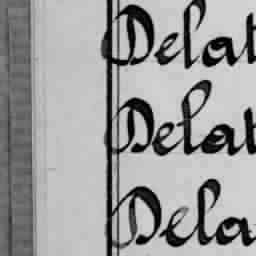 Delat
Delat
Dela